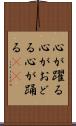 心が躍る
心がおど
る心が踊
る